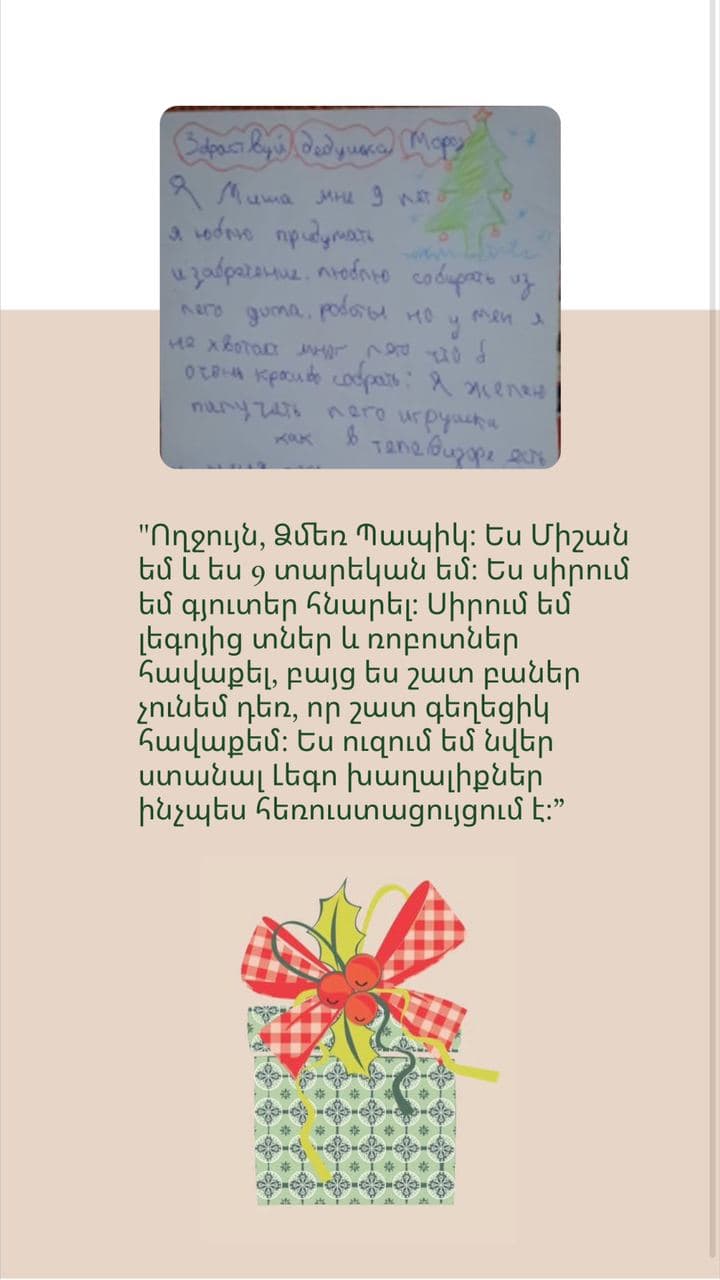 Здраствуй дедушка Мороз
Я Миша мне 9 лет
я люблю придумать
изабратение. люблю собирать из
лего дома. роботы но у мен я
не хватает мног лего что б
очень красиво собрать: Я желаю
палучать лего игрушки
как в телевизоре есть
"Ողջույն, Ձմեռ Պապիկ: Ես Միշան
եմ և ես 9 տարեկան եմ: Ես սիրում
եմ գյուտեր հնարել: Սիրում եմ
լեգոյից տներ և ռոբոտներ
հավաքել, բայց ես շատ բաներ
չունեմ դեռ, որ շատ գեղեցիկ
հավաքեմ: Ես ուզում եմ նվեր
ստանալ Լեգո խաղալիքներ
ինչպես հեռուստացույցում է:”